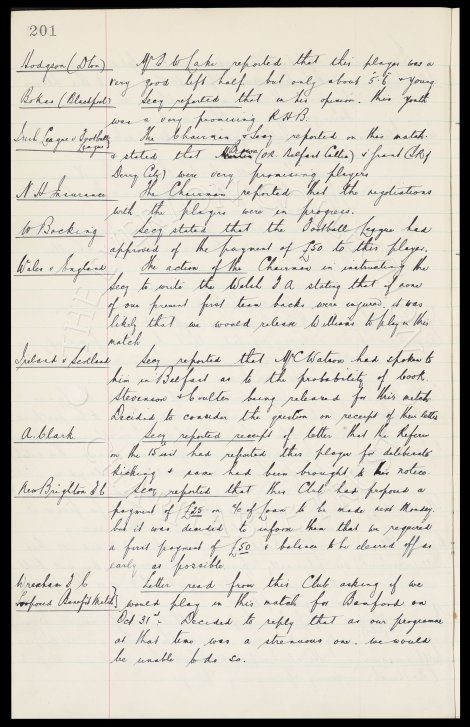 201
Hodgson (Dton) Mr J W Cake reported that this player was a
very good left half but only about 5·6 & young
Bokas (Blackpool) Secy reported that in his opinion this youth
was a very promising R.H.B.
Irish League v Football League The Chairman & Secy reported on this match
& stated that Brown (OR Belfast Celtic) & Grant (CH
Derry City) were very promising players
N.H. Insurance The Chairman reported that the negotiations
with the players were in progress.
W Bocking Secy stated that the Football League had
approved of the payment of £50 to this player.
Wales v England The action of the Chairman in instructing the
Secy to write the Welsh F A stating that if none
of our present first team backs were injured, it was
likely that we would release Williams to play in this
match
Ireland v Scotland Secy reported that Mr C Watson had spoken to
him in Belfast as to the probability of Cook.
Stevenson & Coulter being released for this match
Decided to consider the question on receipt of their letter
A. Clark Secy reported receipt of letter that the Referee
on the 15 inst had reported this player for deliberate
kicking & same had been brought to his notice
New Brighton F C Secy reported that this Club had proposed a
payment of £25 on a/c of Loan to be made next Monday.
but it was decided to inform them that we required
a first payment of £50 & balance to be cleared off as
early as possible.
Wrexham F. C. Letter read from this Club asking if we
(Proposed Benefit Match) would play in this match for Bamford on
Oct 31st. Decided to reply that as our programme
at that time was a strenuous one. we would
be unable to do so.